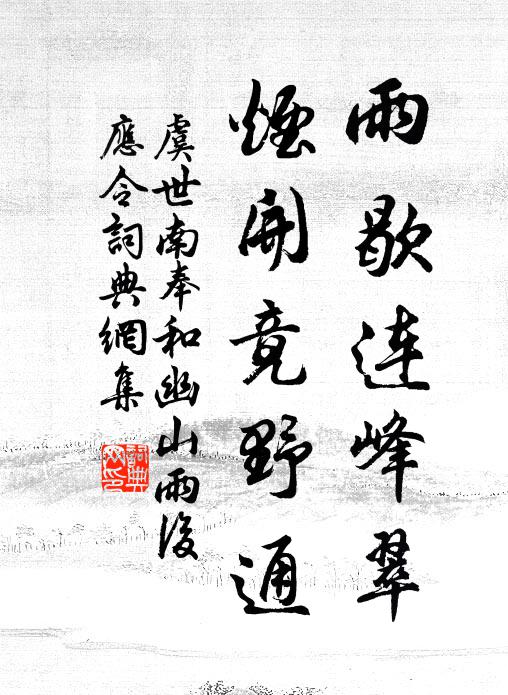 雨歇連峰翠
煙開竟野通
虞世南奉和幽山雨後
應令詞典網集
詞典
网印